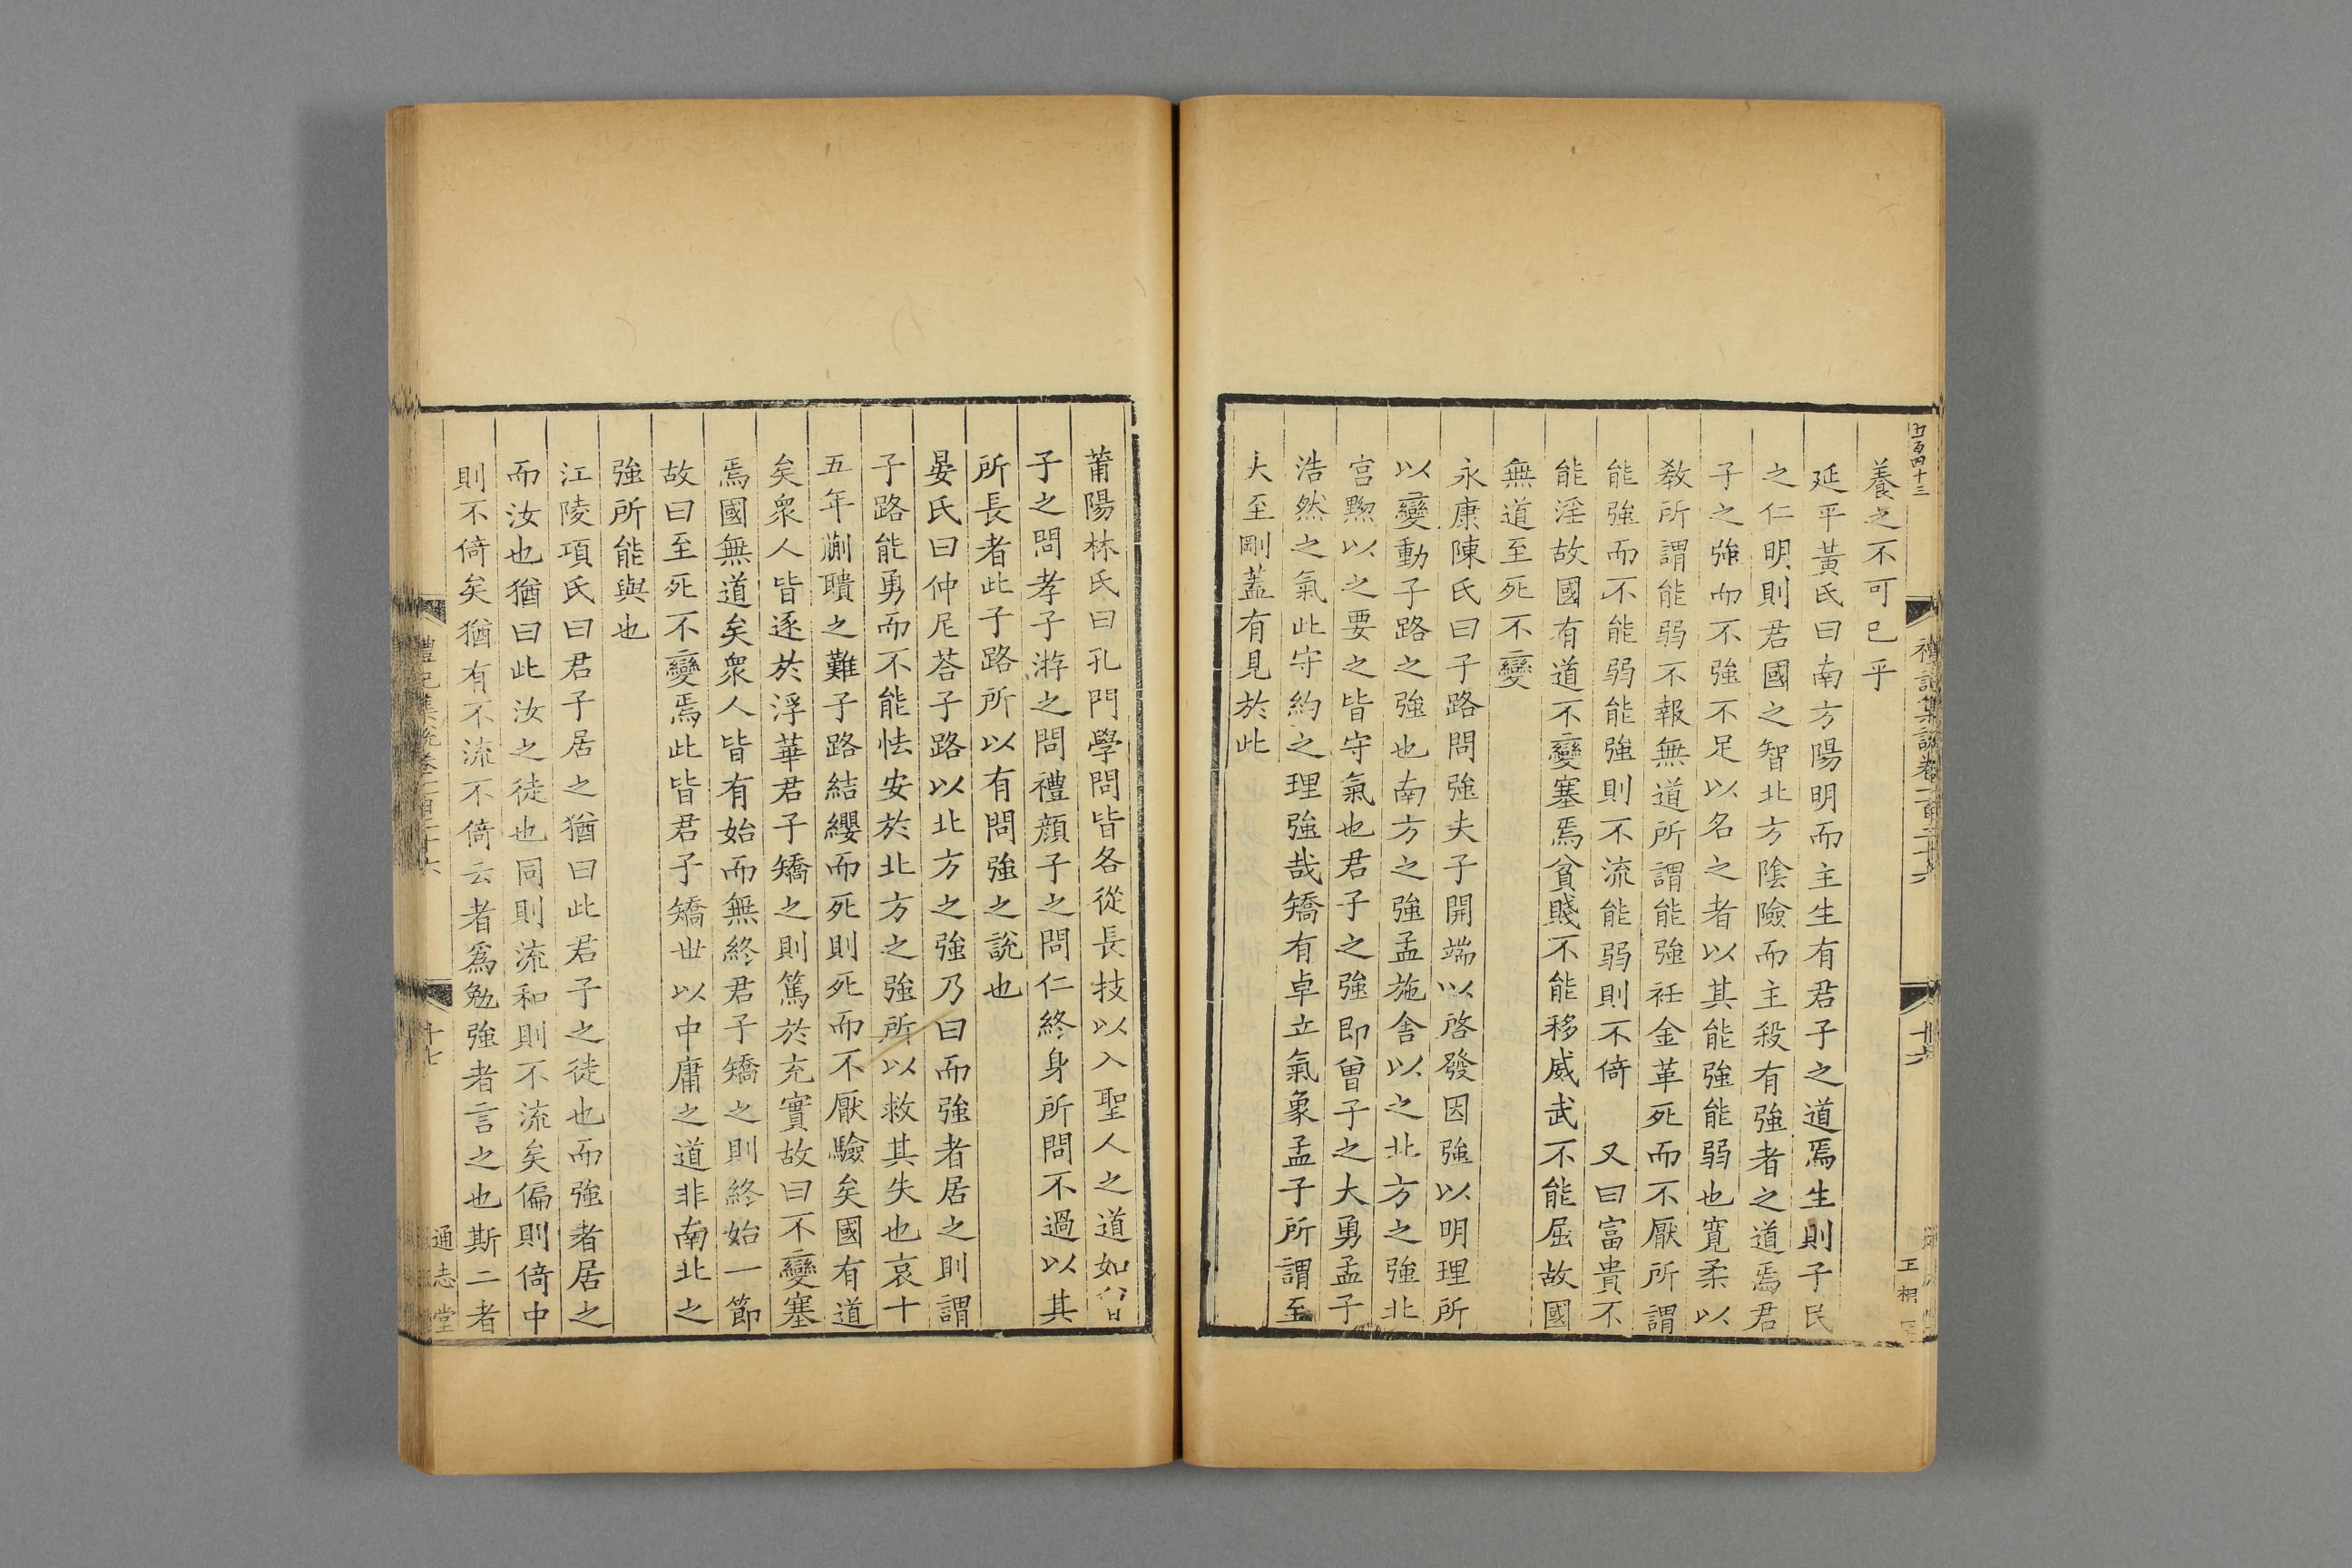 五百四十三
禮記集說卷一百二十六
十六
王相
養之不可已乎
延平黃氏曰南方陽明而主生有君子之道焉生則子民
之仁明則君國之智北方陰險而主殺有強者之道焉君
子之強而不強不足以名之者以其能強能弱也寬柔以
敎所謂能弱不報無道所謂能強衽金革死而不厭所謂
能強而不能弱能強則不流能弱則不倚　又曰富貴不
能淫故國有道不變塞焉貧賤不能移威武不能屈故國
無道至死不變
永康陳氏曰子路問強夫子開端以啓發因強以明理所
以變動子路之強也南方之強孟施舍以之北方之強北
宫黝以之要之皆守氣也君子之強即曾子之大勇孟子
浩然之氣此守約之理強哉矯有卓立氣象孟子所謂至
大至剛蓋有見於此
莆陽林氏曰孔門學問皆各從長技以入聖人之道如曾
子之問孝子游之問禮顏子之問仁終身所問不過以其
所長者此子路所以有問強之說也
晏氏曰仲尼荅子路以北方之強乃曰而強者居之則謂
子路能勇而不能怯安於北方之強所以救其失也哀十
五年蒯聵之難子路結纓而死則死而不厭驗矣國有道
矣衆人皆逐於浮華君子矯之則篤於充實故曰不變塞
焉國無道矣衆人皆有始而無終君子矯之則終始一節
故曰至死不變焉此皆君子矯世以中庸之道非南北之
強所能與也
江陵項氏曰君子居之猶曰此君子之徒也而強者居之
而汝也猶曰此汝之徒也同則流和則不流矣偏則倚中
則不倚矣猶有不流不倚云者爲勉強者言之也斯二者
禮記集說卷一百二十六
十七
通志堂